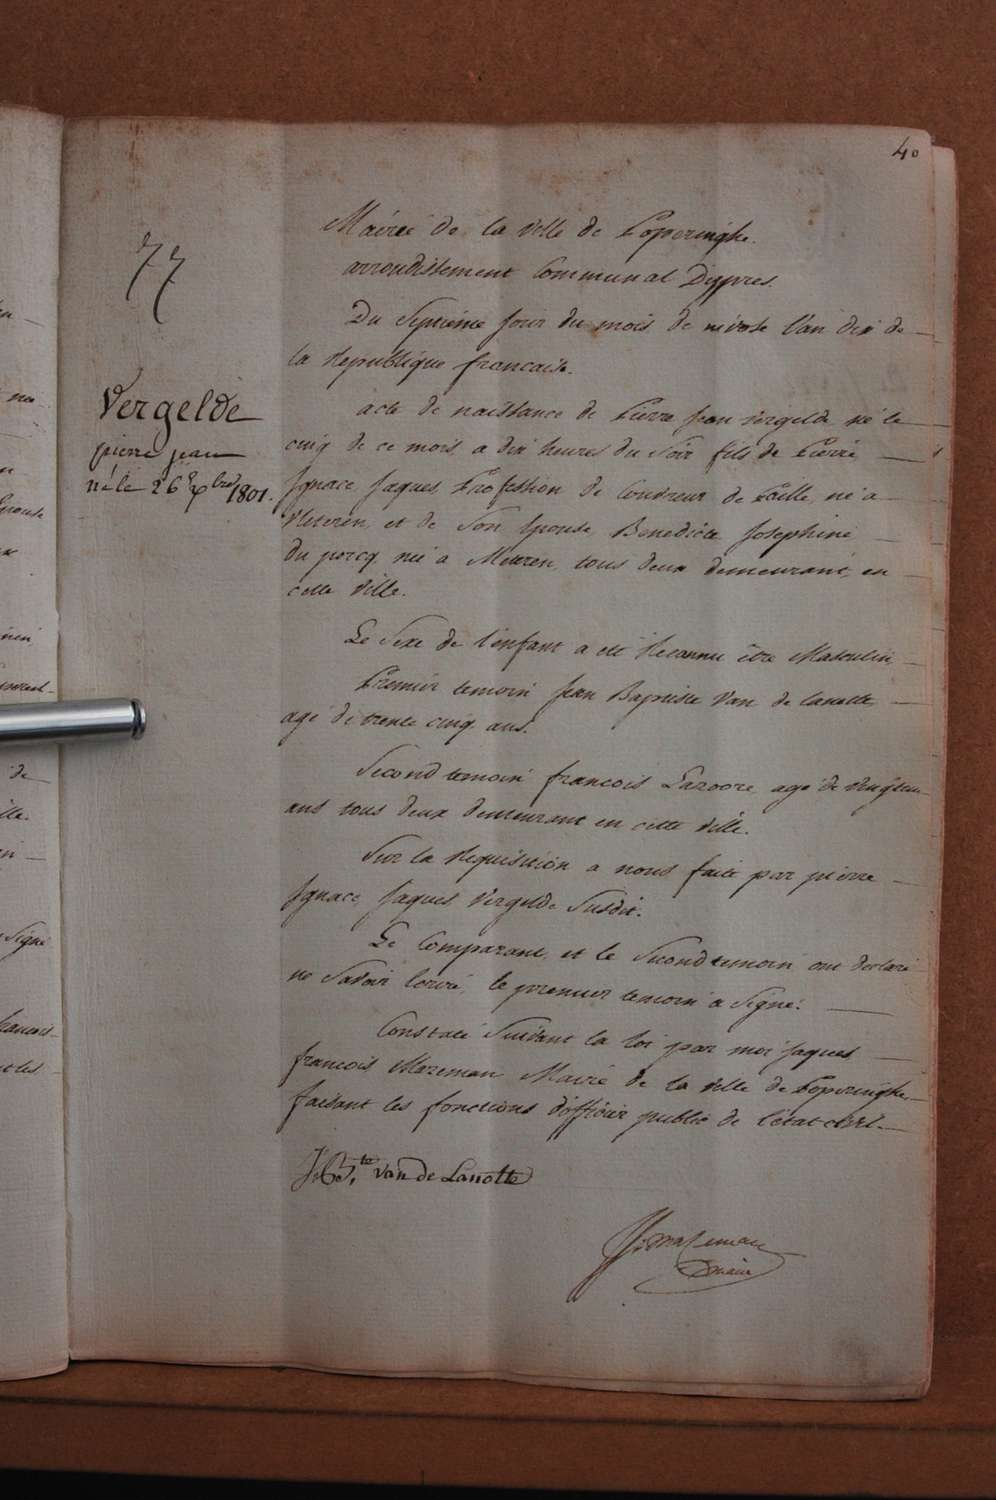 40
77
Mairie de la ville de Poperinghe.
arrondissement Communal Dypres.
Du Septieme jour du mois de nivose l'an dix de
la Republique francaise.
Vergelde
pierre jean
né le 26 Xbre 1801.
acte de naissance de Pierre Jean Vergelde né le
cinq de ce mois a dix heures du Soir fils de Pierre
Ignace Jaques Profession de Couvreur de né a
Meteren, et de Son Epouse Benedicte Josephine
du porcq née a Meteren, tous deux demeurant en
cette Ville.
Le Sexe de l'enfant a eté Reconnu être Masculin
Premier temoin Jean Baptiste Van de Lanotte
agé de trente cinq ans.
Second temoin francois agé de
ans tous deux demeurant en cette ville.
Sur la Requisition a nous faite par pierre
Ignace Jaques Vergelde Susdit.
Le Comparant, et le Second temoin ont declaré
ne Savoir Ecrire, le premier temoin a Signé.
Constaté Suivant la loi par moi Jaques
francois Mazeman Maire de la Ville de Poperinghe
faisant les fonctions d'officier public de l'état civil.
J:B.te van de Lanotte
Mazeman
maire